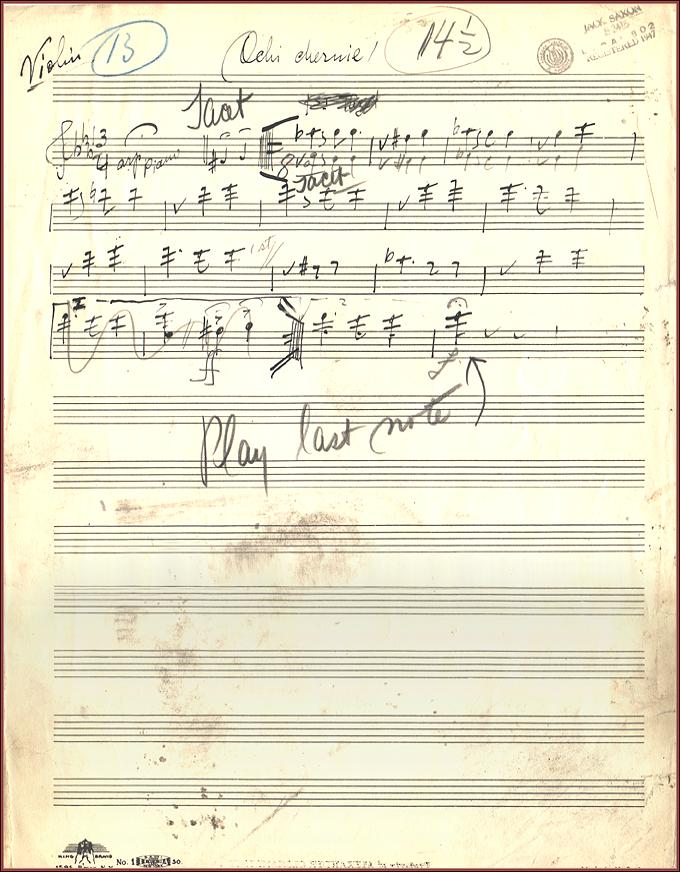 Violin 13 (Ochi chernie) 14½
JACK SAXON
REGISTERED 1947
Tacet
3
4 arp piano
8
Tacet
1st
I
ff
Play last note
KING BRAND No. 1